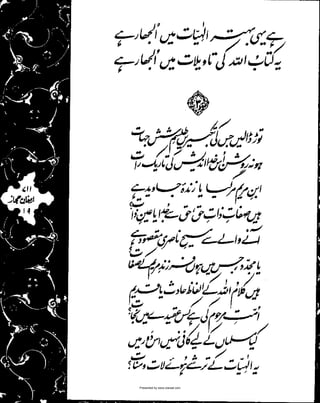 ہے یہی بہتر الٰہیات میں الجھا رہے
یہ کتاب اللہ کی تاویلات میں الجھا رہے
توڑ ڈالیں جس کی تکبیریں طلسمِ شش جہات
ہو نہ روشن اس خدا اندیش کی تاریک رات
ابن مریم مر گیا یا زندۂ جاوید ہے
ہیں صفاتِ ذاتِ حق، حق سے جدا یا عین ذات؟
آنے والے سے مسیحِ ناصری مقصود ہے
یا مجدد، جس میں ہوں فرزندِ مریم کے صفات؟
ہیں کلام اللہ کے الفاظ حادث یا قدیم
امتِ مرحوم کی ہے کس عقیدے میں نجات؟
کیا مسلماں کے لیے کافی نہیں اس دور میں
یہ الٰہیات کے ترشے ہوئے لات و منات؟
۷۱۱
ارمغان حجاز
Presented by www.ziaraat.com